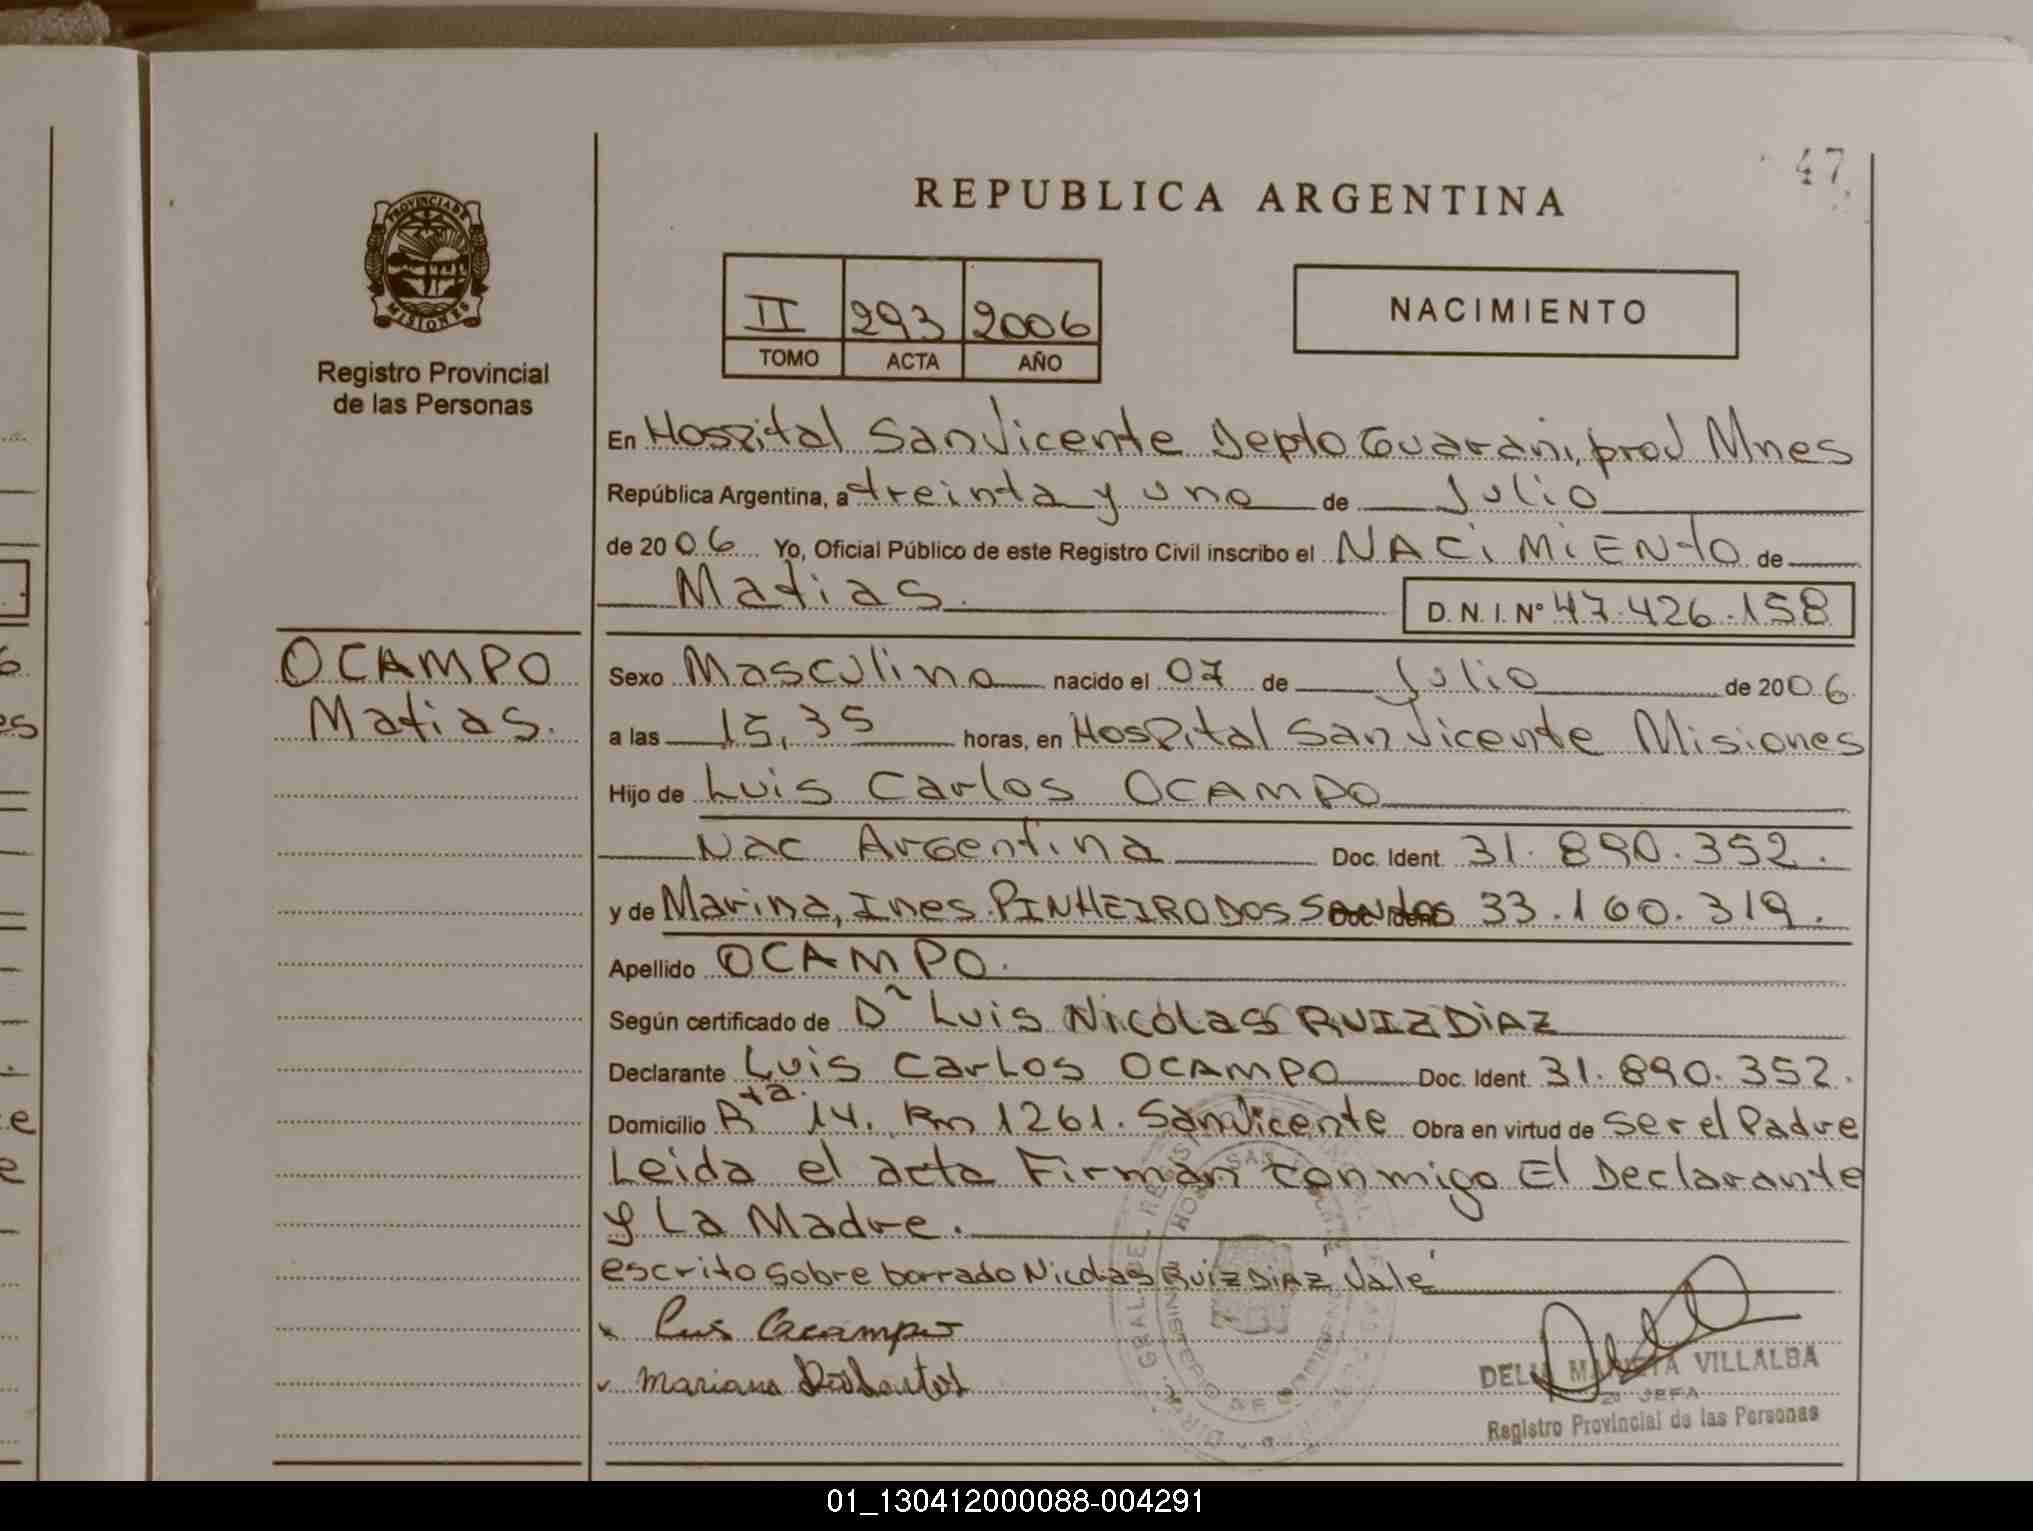 47
REPUBLICA ARGENTINA
PROVINCIA DE MISIONES
Registro Provincial
de las Personas
II 293 2006
TOMO ACTA AÑO
NACIMIENTO
En Hospital San Vicente Depto Guarani, prov Mnes
República Argentina, a treinta y uno de Julio
de 2006 Yo, Oficial Público de este Registro Civil inscribo el NACIMIENTO de
Matias.
D. N. I. Nº 47.426.158
OCAMPO
Matias.
Sexo Masculino nacido el 07 de Julio de 2006.
a las 15,35 horas, en Hospital San Vicente Misiones
Hijo de Luis Carlos OCAMPO
Nac Argentina Doc. Ident. 31.890.352.
y de Marina, Ines PINHEIRO DOS SANTOS Doc. Ident. 33.160.319.
Apellido OCAMPO.
Según certificado de Dr Luis Nicolas RUIZ DIAZ
Declarante Luis Carlos OCAMPO Doc. Ident. 31.890.352.
Domicilio Rta 14. Km 1261. San Vicente Obra en virtud de ser el Padre
Leida el acta Firman conmigo El Declarante
y La Madre.
escrito sobre borrado Nicolas Ruiz DIAZ Vale
Luis Ocampo
DELIA MARIETA VILLALBA
2º JEFA
Registro Provincial de las Personas
01_130412000088-004291